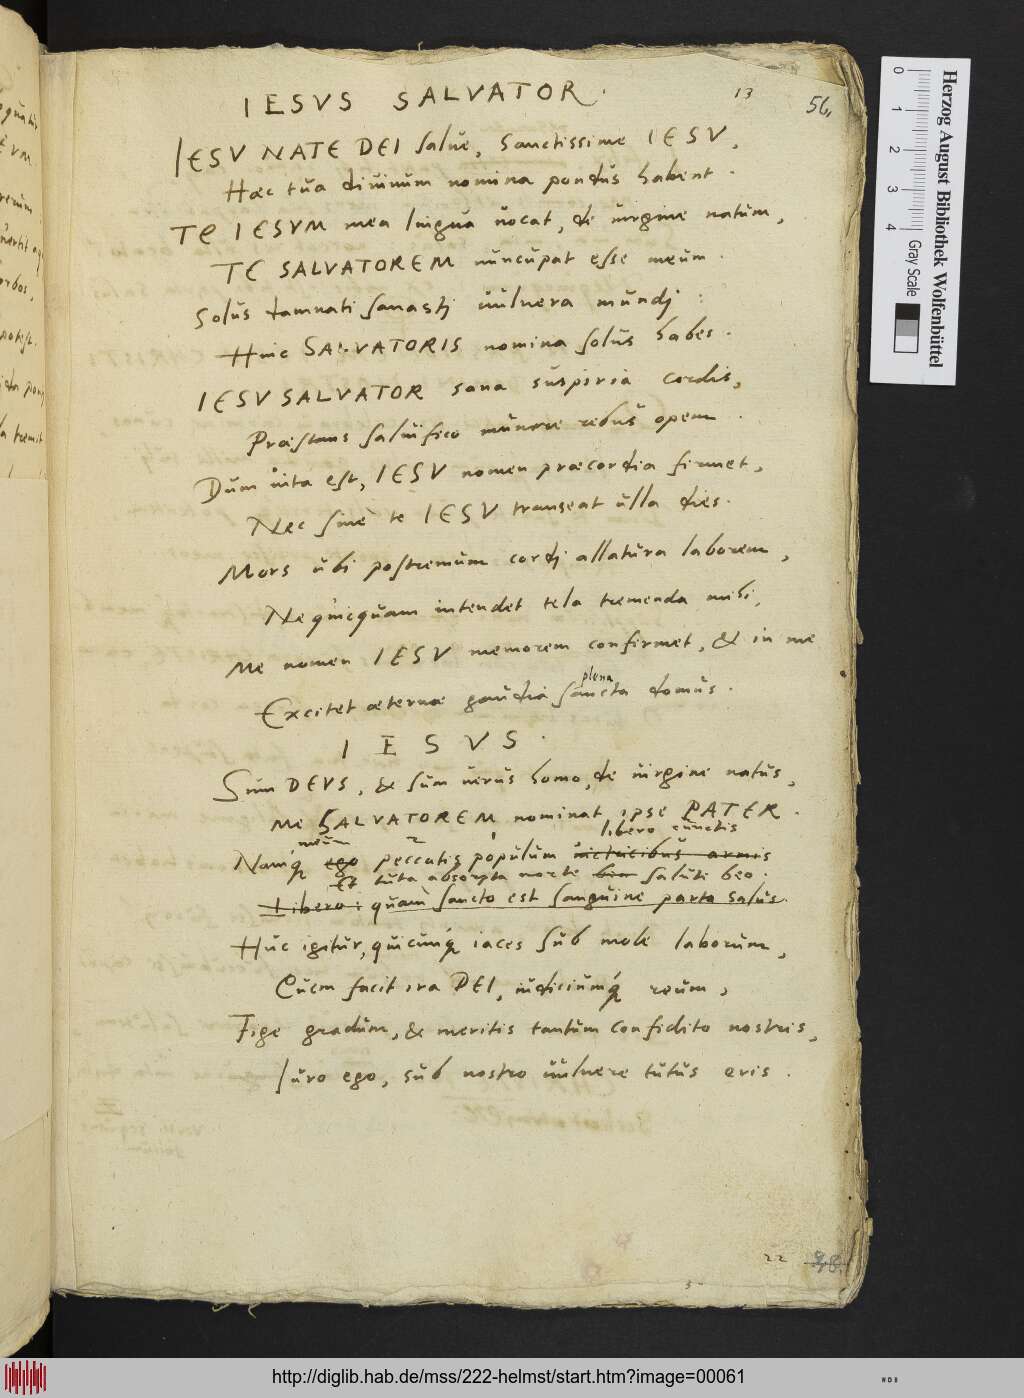 IESVS SALVATOR.
13
56,
IESV NATE DEI salue, sanctissime IESV,
Haec tua diuinum nomina pondus habent.
TE IESVM mea lingua uocat, de uirgine natum,
TE SALVATOREM nuncupat esse meum.
Solus damnati sanasti uulnera mundj:
Hinc SALVATORIS nomina solus habes.
IESV SALVATOR sana suspiria cordis,
Praestans saluifico munere rebus opem.
Dum uita est, IESV nomen praecordia firmet,
Nec sine te IESV transeat ulla dies.
Mors ubi postremum cordj allatura laborem,
Nequicquam intendet tela tremenda mihi,
Me nomen IESV memorem confirmet, & in me
plena
Excitet aeternae gaudia sancta domus.
IESVS.
Sum DEVS, & sum uerus homo, de uirgine natus,
Me SALVATOREM nominat ipse PATER.
meum libero cunctis
Namq́ ego peccatis populum uictricibus armis
Et tuta absorpta morte saluti beo.
Libero: quam sancto est sanguine parta salus.
Huc igitur, quicunq́ iaces sub mole laborum,
Quem facit ira DEI, iudiciumq́ reum,
Fige gradum, & meritis tantum confidito nostris,
Iuro ego, sub nostro uulnere tutus eris.
22
0 1 2 3 4
Gray Scale
Herzog August Bibliothek Wolfenbüttel
http://diglib.hab.de/mss/222-helmst/start.htm?image=00061